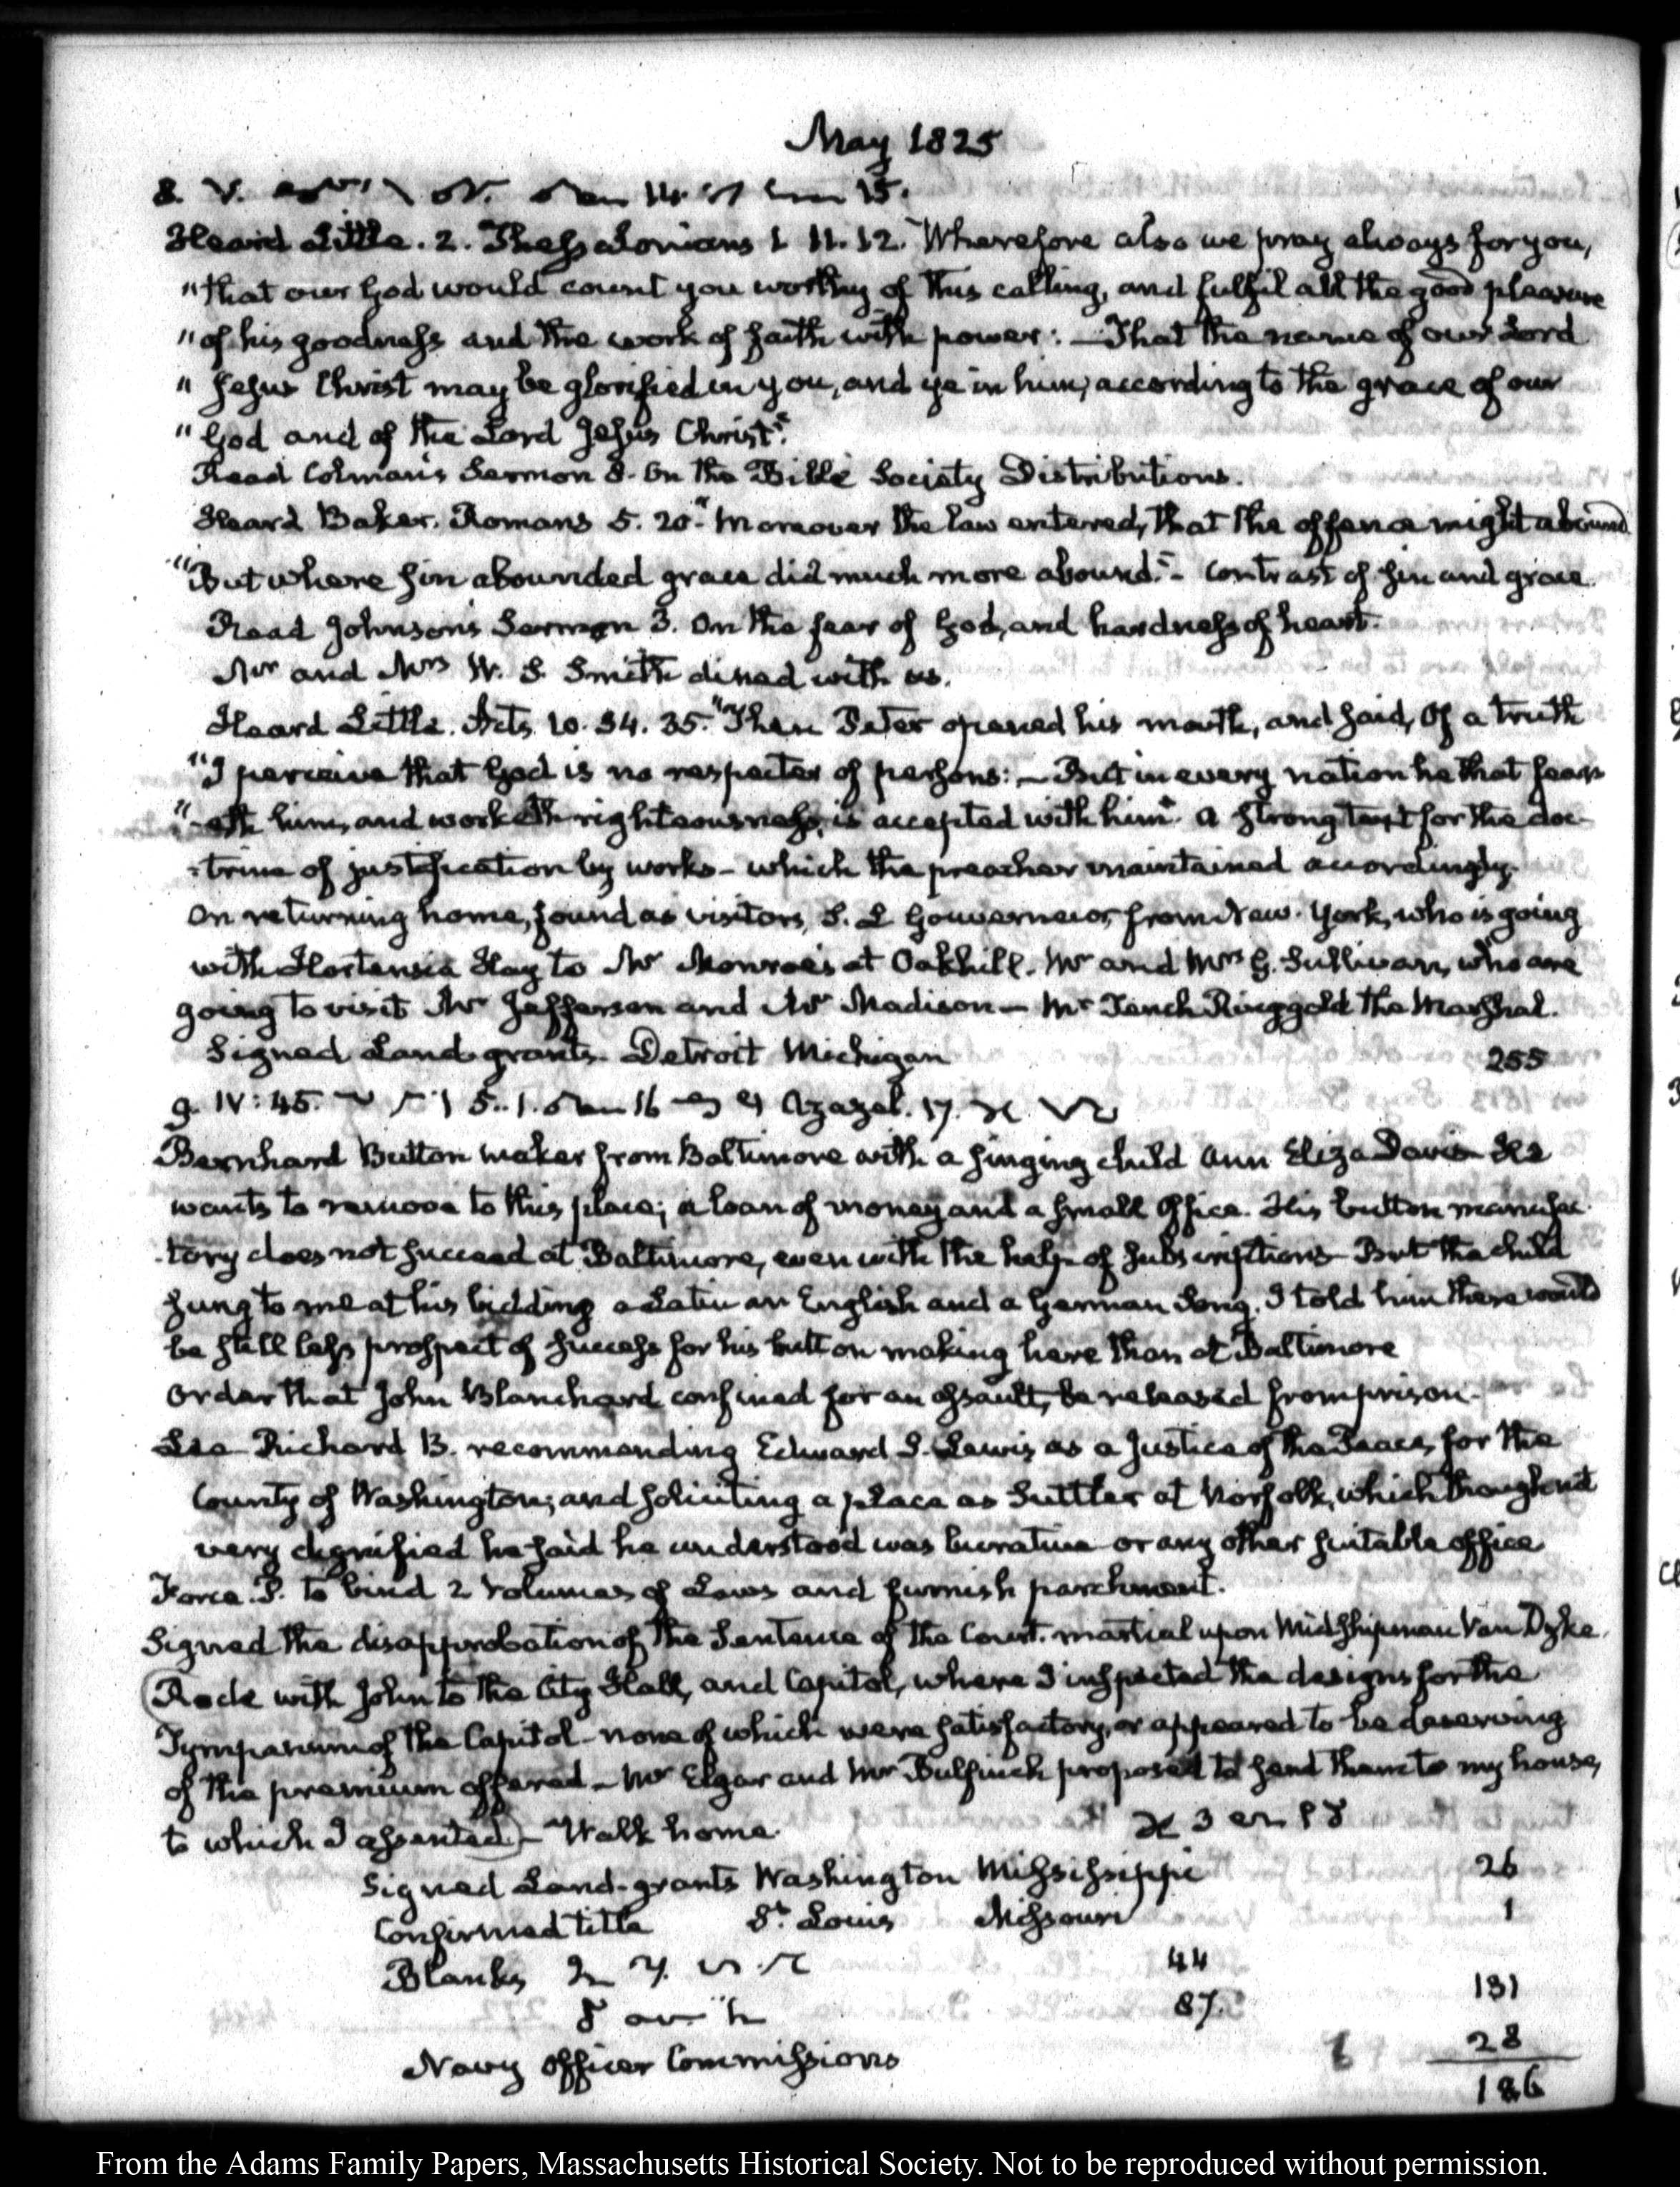 May 1825
8. V. 14. 15.
Heard Little. 2. Thessalonians 1 11. 12. "Wherefore also we pray always for you,
"that our God would count you worthy of this calling, and fulfil all the good pleasure
"of his goodness and the work of faith with power: — That the name of our Lord
"Jesus Christ may be glorified in you, and ye in him, according to the grace of our
"God and of the Lord Jesus Christ".
Read Colman's Sermon 8. On the Bible Society Distributions.
Heard Baker. Romans 5. 20. "Moreover the law entered, that the offence might abound
"But where sin abounded grace did much more abound." - Contrast of sin and grace.
Read Johnson's Sermon 3. On the fear of God, and hardness of heart.
Mr and Mrs W. S. Smith dined with us.
Heard Little. Acts 10. 34. 35. "Then Peter opened his mouth, and said, Of a truth
"I perceive that God is no respecter of persons: — But in every nation he that fear-
"-eth him, and worketh righteousness, is accepted with him" A strong text for the doc-
-trine of justification by works - which the preacher maintained accordingly.
On returning home, found as visitors, S. L Gouverneur, from New-York, who is going
with Hortensia Hay to Mr Monroe's at Oakhill. Mr and Mrs G. Sullivan, who are
going to visit Mr Jefferson and Mr Madison — Mr Tench Ringgold the Marshal.
Signed Land-grants Detroit Michigan 255
9. IV: 45. 5..1. 16 Azazel. 17.
Bernhard Button maker from Baltimore with a singing child Ann Eliza Davis He
wants to remove to this place; a loan of money and a small Office. His button manufac-
-tory does not succeed at Baltimore, even with the help of subscriptions - But the child
sung to me at his bidding a Latin an English and a German Song. I told him there would
be still less prospect of success for his button making here than at Baltimore
Order that John Blanchard confined for an assault, be released from prison.
Lee Richard B. recommending Edward S. Lewis as a Justice of the Peace, for the
County of Washington; and soliciting a place as Suttler at Norfolk, which though not
very dignified he said he understood was lucrative or any other suitable office
Force. P. to bind 2 Volumes of Laws and furnish parchment.
Signed the disapprobation of the Sentence of the Court-martial upon Midshipman Van Dyke.
(Rode with John to the City Hall, and Capitol, where I inspected the designs for the
Tympanum of the Capitol - none of which were satisfactory, or appeared to be deserving
of the premium offered — Mr Elgar and Mr Bulfinch proposed to send them to my house,
to which I assented) - Walk home.
Signed Land-grants Washington Mississippi 26
Confirmed title St. Louis Missouri 1
Blanks 44
87. 131
Navy Officer Commissions 28
186
From the Adams Family Papers, Massachusetts Historical Society. Not to be reproduced without permission.